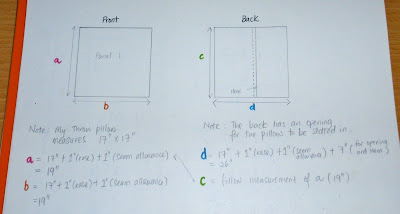 Front
Back
Panel 1
a
b
c
d
Hem
Note: My throw pillow
measures 17" x 17"
a = 17" + 1" (ease) + 1" (seam allowance)
= 19"
b = 17" + 1" (ease) + 1" (seam allowance)
= 19"
Note: The back has an opening
for the pillow to be slotted in.
d = 17" + 1" (ease) + 1" (seam allowance) + 7" (for opening and hem)
= 26"
c = follow measurement of a (19")